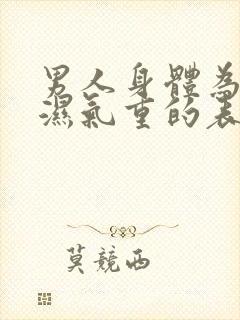 男人身體為
濕氣重的表
莫競西